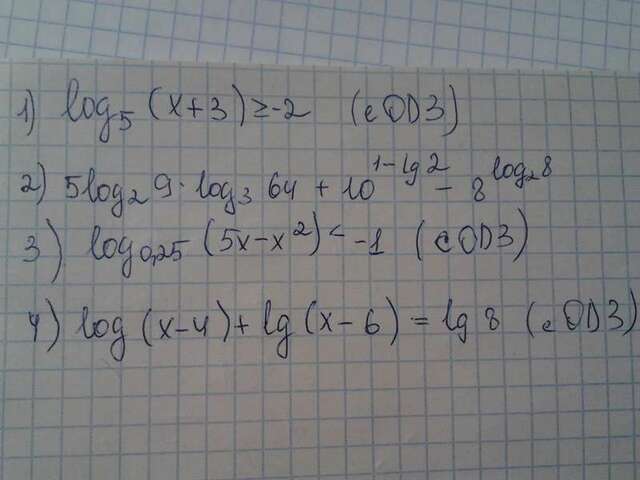 1) log₅ (x+3) ≥ -2 (с ОДЗ)
2) 5log₂ 9 · log₃ 64 + 10^(1-lg 2) - 8^(log₂8)
3) log₀,₂₅ (5x-x²) < -1 (с ОДЗ)
4) log (x-4) + lg (x-6) = lg 8 (с ОДЗ)